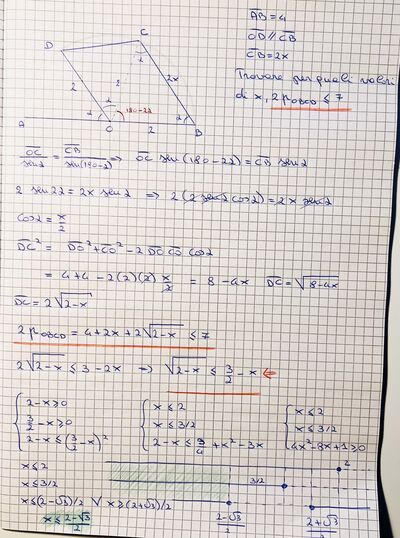 D
C
AB = 4
OD // CB
CB = 2x
Trovare per quali valori
di x, 2pOBCD ≤ 7
2
2
2x
α
α
α
180-2α
α
A
O
2
B
OC/sin α = CB/sin(180-2α) ⇒ OC sen(180-2α) = CB sen α
2 sen 2α = 2x sen α ⇒ 2(2 sen α cos α) = 2x sen α
cos α = x/2
DC² = DO² + CO² - 2 DO CO cos α
= 4+4 - 2(2)(2) x/2 = 8 - 4x DC = √8-4x
DC = 2√2-x
2pOBCD = 4+2x+2√2-x ≤ 7
2√2-x ≤ 3-2x → √2-x ≤ 3/2 - x ⇐
{ 2-x ≥ 0 { x ≤ 2 { x ≤ 2
3/2 - x ≥ 0 x ≤ 3/2 x ≤ 3/2
2-x ≤ (3/2 - x)² 2-x ≤ 9/4 + x² - 3x 4x² - 8x + 1 ≥ 0
x ≤ 2 2
x ≤ 3/2 3/2
x ≤ (2-√3)/2 V x ≥ (2+√3)/2
x ≤ 2-√3/2 2-√3/2 2+√3/2